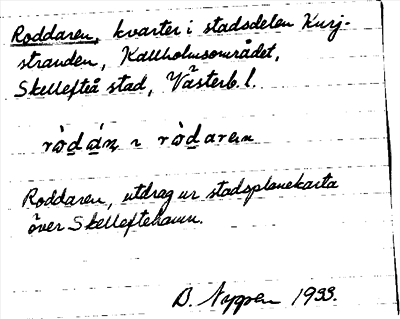 Roddaren, kvarter i stadsdelen Kurj-
stranden, Kallholmsområdet,
Skellefteå stad, Västerb. l.
Roddaren, utdrag ur stadsplanekarta
över Skelleftehamn.
B. Nygren 1933.